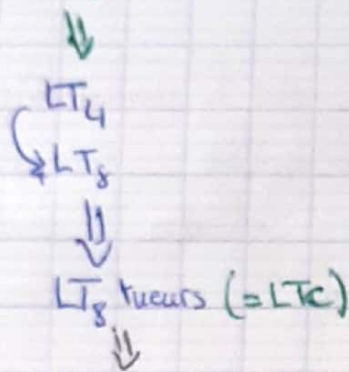 ⇓
LT₄
↳ LT₈
⇓
LT₈ tueurs (= LTc)
⇓